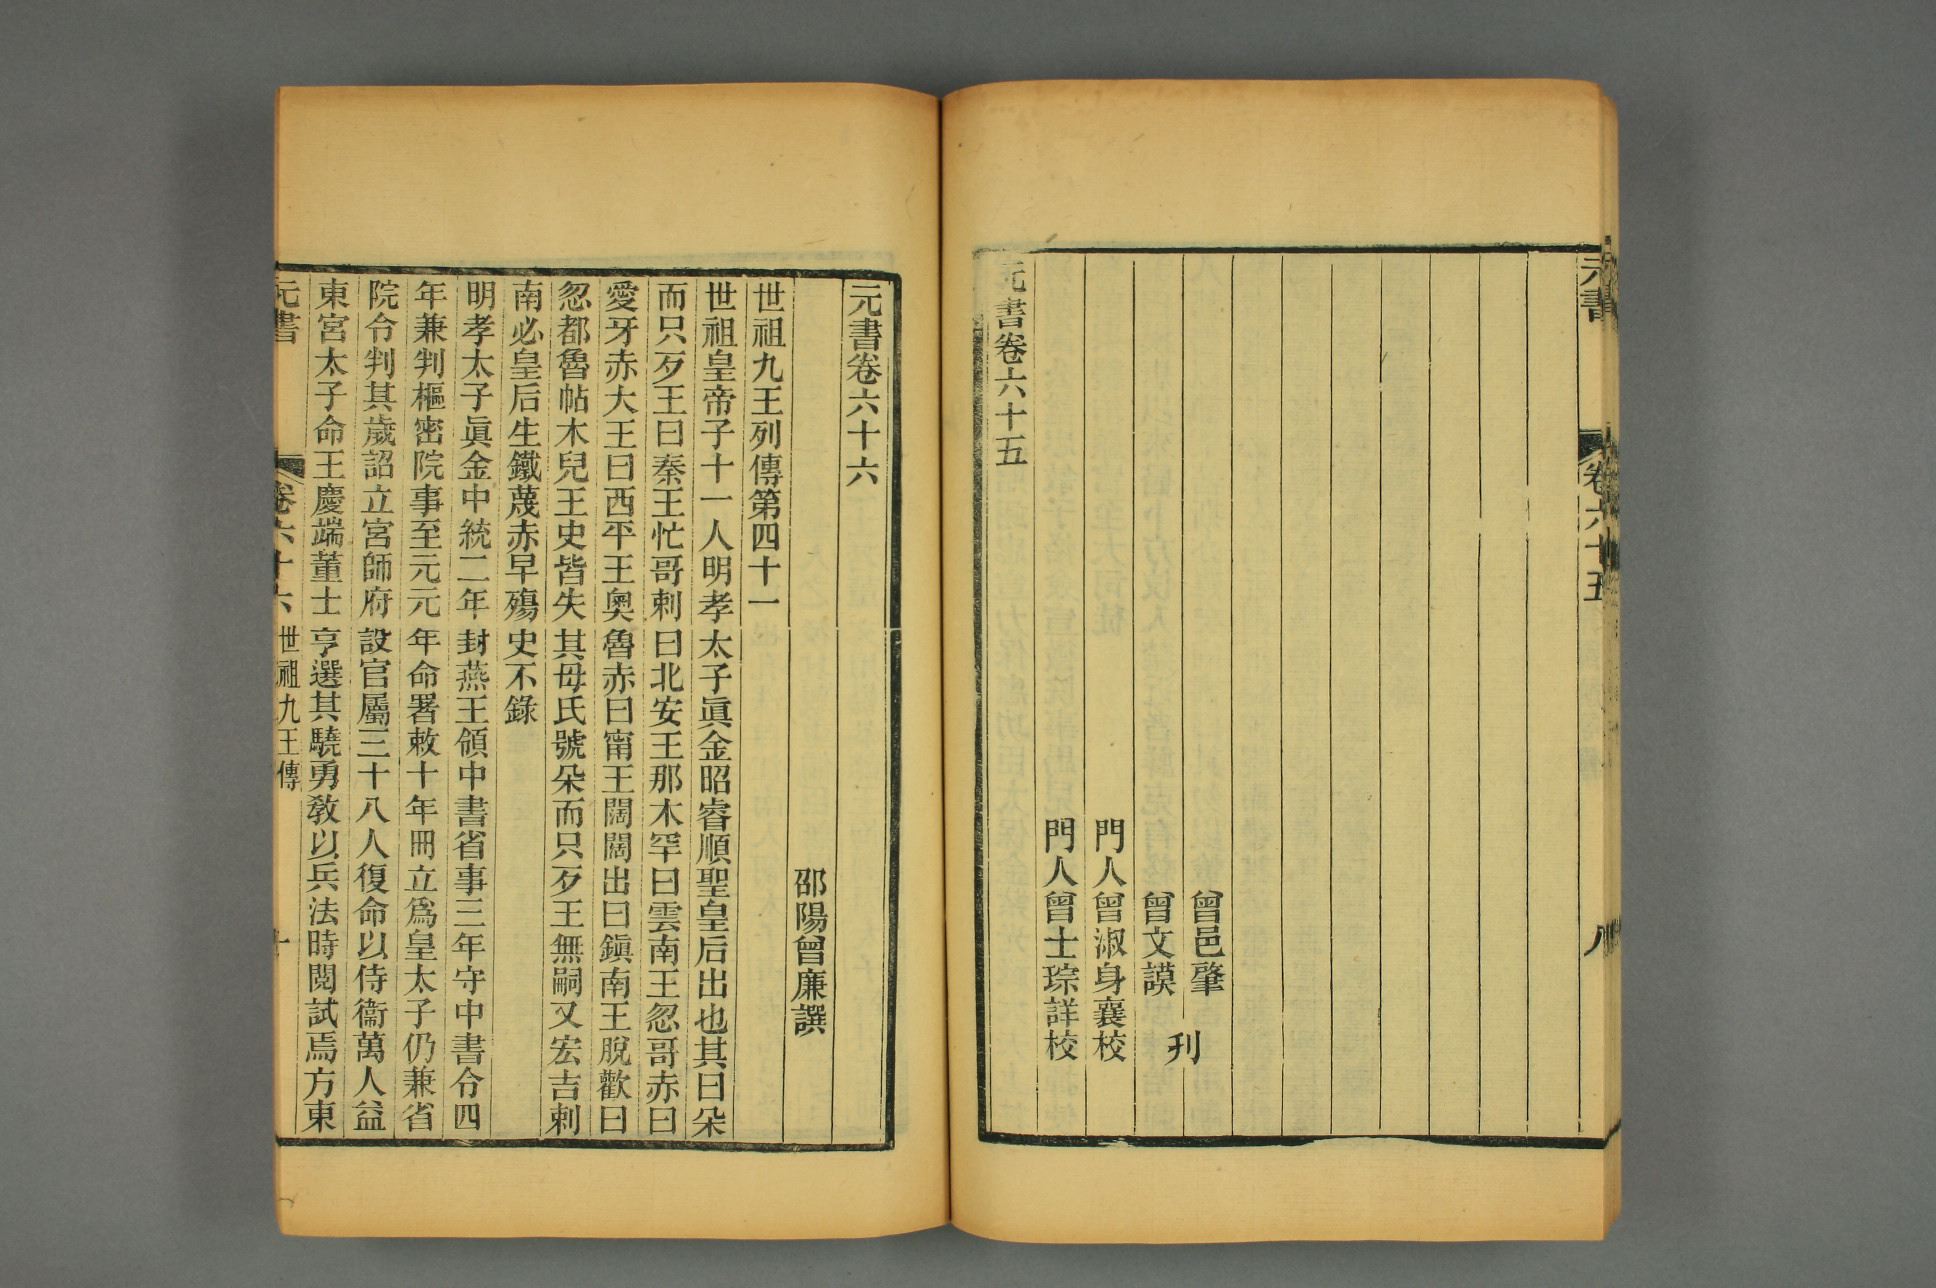 元書
卷六十五
八
曾邑肇
曾文謨
刋
門人曾淑身襄校
門人曾士琮詳校
元書卷六十五
元書卷六十六
邵陽曾廉譔
世祖九王列傳第四十一
世祖皇帝子十一人明孝太子眞金昭睿順聖皇后出也其曰朵
而只歹王曰秦王忙哥剌曰北安王那木罕曰雲南王忽哥赤曰
愛牙赤大王曰西平王奧魯赤曰甯王闊闊出曰鎭南王脫歡曰
忽都魯帖木兒王史皆失其母氏號朵而只歹王無嗣又宏吉剌
南必皇后生鐵蔑赤早殤史不錄
明孝太子眞金中統二年封燕王領中書省事三年守中書令四
年兼判樞密院事至元元年命署敕十年冊立爲皇太子仍兼省
院令判其歲詔立宮師府設官屬三十八人復命以侍衞萬人益
東宮太子命王慶端董士亨選其驍勇敎以兵法時閱試焉方東
元書
卷六十六
世祖九王傳
一